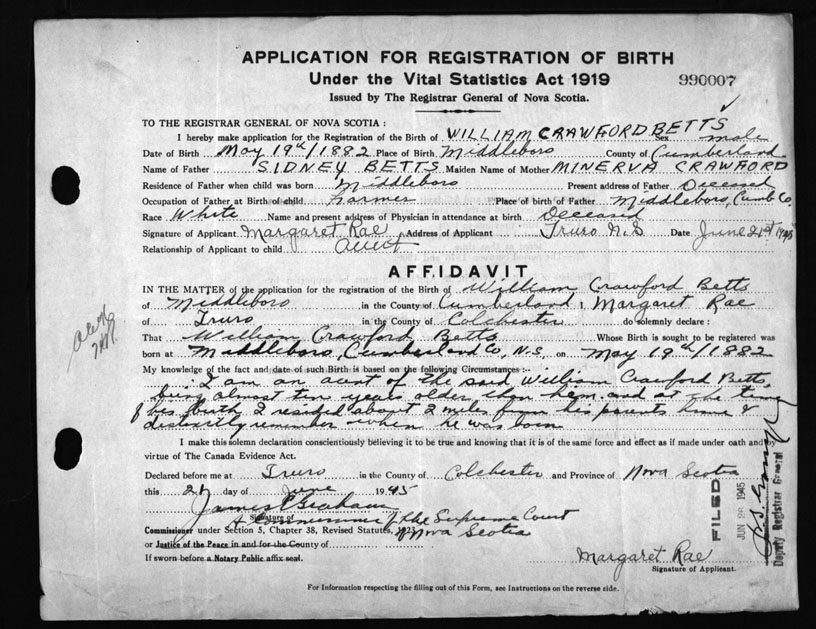 APPLICATION FOR REGISTRATION OF BIRTH
Under the Vital Statistics Act 1919
990007
Issued by The Registrar General of Nova Scotia.
TO THE REGISTRAR GENERAL OF NOVA SCOTIA :
I hereby make application for the Registration of the Birth of WILLIAM CRAWFORD BETTS Sex male
Date of Birth May 19th/1882 Place of Birth Middleboro County of Cumberland
Name of Father SIDNEY BETTS Maiden Name of Mother MINERVA CRAWFORD
Residence of Father when child was born Middleboro Present address of Father Deceased
Occupation of Father at Birth of child Farmer Place of birth of Father Middleboro, Cumb Co,
Race White Name and present address of Physician in attendance at birth Deceased
Signature of Applicant Margaret Rae Address of Applicant Truro N.S Date June 21st 1945
Relationship of Applicant to child Aunt
AFFIDAVIT
IN THE MATTER of the application for the registration of the Birth of William Crawford Betts
of Middleboro in the County of Cumberland I, Margaret Rae
of Truro in the County of Colchester do solemnly declare :
That William Crawford Betts Whose Birth is sought to be registered was
born at Middleboro, Cumberland Co, N.S, on May 19th/1882
My knowledge of the fact and date of such Birth is based on the following Circumstances :-
I am an aunt of the said William Crawford Betts,
being almost ten years older than him and at the time
of his birth I resided about 2 miles from his parents home &
distinctly remember when he was born
I make this solemn declaration conscientiously believing it to be true and knowing that it is of the same force and effect as if made under oath and by
virtue of The Canada Evidence Act.
Declared before me at Truro in the County of Colchester and Province of Nova Scotia
this 21 day of June 1945
James P Graham
Signature of
A Commissioner of the Supreme Court
Commissioner under Section 5, Chapter 38, Revised Statutes, of Nova Scotia
or Justice of the Peace in and for the County of
If sworn before a Notary Public affix seal.
Margaret Rae
Signature of Applicant.
FILED
JUN 26 1945
Deputy Registrar General
For Information respecting the filling out of this Form, see Instructions on the reverse side.